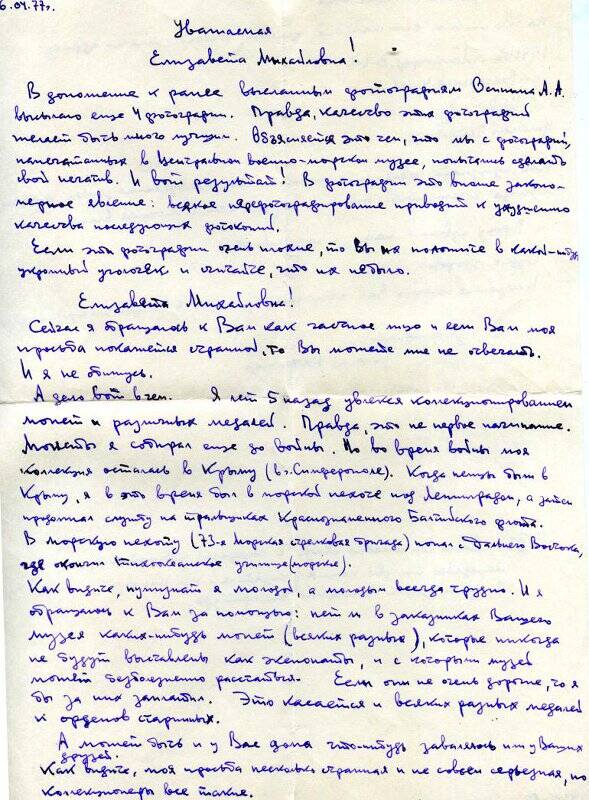 6.04.77г.
Уважаемая
Елизавета Михайловна!
В дополнение к ранее высланным фотографиям А.А.
высылаю еще 4 фотографии. Правда, качество этих фотографий
желает быть много лучшим. Объясняется это тем, что мы с фотографий,
напечатанных в Центральном военно-морском музее, попытались сделать
свой негатив. И вот результат! В фотографии это вполне законо-
мерное явление: всякое перефотографирование приводит к ухудшению
качества последующих фотокопий.
Если эти фотографии очень плохие, то Вы их положите в какой-нибудь
укромный уголочек и считайте, что их не было.
Елизавета Михайловна!
Сейчас я обращаюсь к Вам как частное лицо и если Вам моя
просьба покажется странной, то Вы можете мне не отвечать.
И я не обижусь.
А дело вот в чем. Я лет 5 назад увлекся коллекционированием
монет и различных медалей. Правда, это не первое начинание.
Монеты я собирал еще до войны. Но во время войны моя
коллекция осталась в Крыму (в г. Симферополе). Когда немцы были в
Крыму, я в это время был в морской пехоте под Ленинградом, а затем
продолжал службу на тральщиках Краснознаменного Балтийского флота.
В морскую пехоту (73-я морская стрелковая бригада) попал с Дальнего Востока,
где окончил Тихоокеанское училище (морское).
Как видите, нумизмат я молодой, а молодым всегда трудно. И я
обращаюсь к Вам за помощью: нет ли в заказниках Вашего
музея каких-нибудь монет (всяких разных), которые никогда
не будут выставлены как экспонаты, и с которыми музей
может безболезненно расстаться. Если они не очень дорогие, то я
бы за них заплатил. Это касается и всяких разных медалей
и орденов старинных.
А может быть и у Вас дома что-нибудь завалялось или у Ваших
друзей.
Как видите, моя просьба несколько странная и не совсем серьезная, но
коллекционеры все такие.